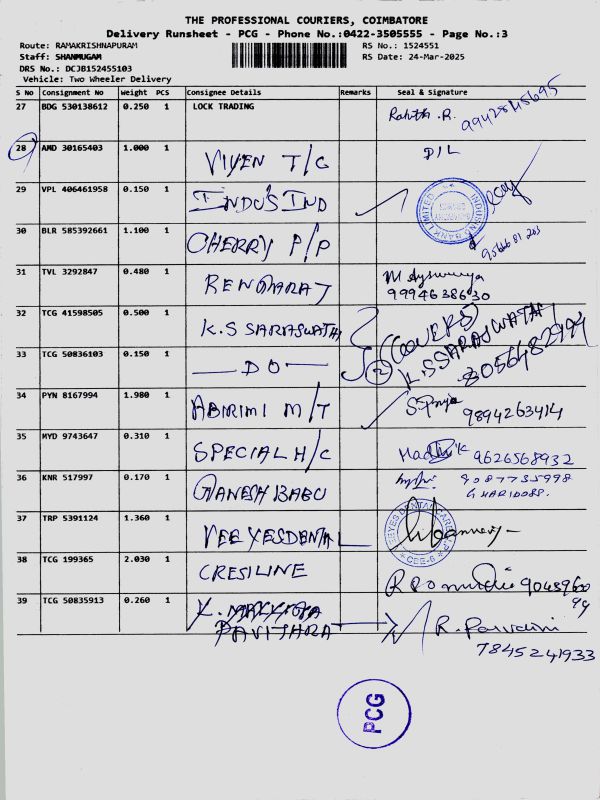 THE PROFESSIONAL COURIERS, COIMBATORE
Delivery Runsheet - PCG - Phone No.:0422-3505555 - Page No.:3
Route: RAMAKRISHNAPURAM RS No.: 1524551
Staff: SHANMUGAM RS Date: 24-Mar-2025
DRS No.: DCJB152455103
Vehicle: Two Wheeler Delivery
S No Consignment No Weight PCS Consignee Details Remarks Seal & Signature
27 BDG 530138612 0.250 1 LOCK TRADING 9942845695
28 AMD 30165403 1.000 1 VIYEN T/C D/L
29 VPL 406461958 0.150 1 INDUS IND
INDUSIND BANK LIMITED
30 BLR 585392661 1.100 1 CHERRY P/P
31 TVL 3292847 0.480 1 RENGARAJ
9994638630
32 TCG 41598505 0.500 1 K.S SARASWATHI
(2) COVERS
K.S SARASWATHI
33 TCG 50836103 0.150 1 — DO — 8056482994
34 PYN 8167994 1.980 1 ABIRIMI M/T 9894263414
35 MYD 9743647 0.310 1 SPECIAL H/C 9626568932
36 KNR 517997 0.170 1 GANESH BABU 9087735998
37 TRP 5391124 1.360 1 VEEYESDENTAL
38 TCG 199365 2.030 1 CRESILINE
39 TCG 50835913 0.260 1
PAVITHRA
7845241933
PCG